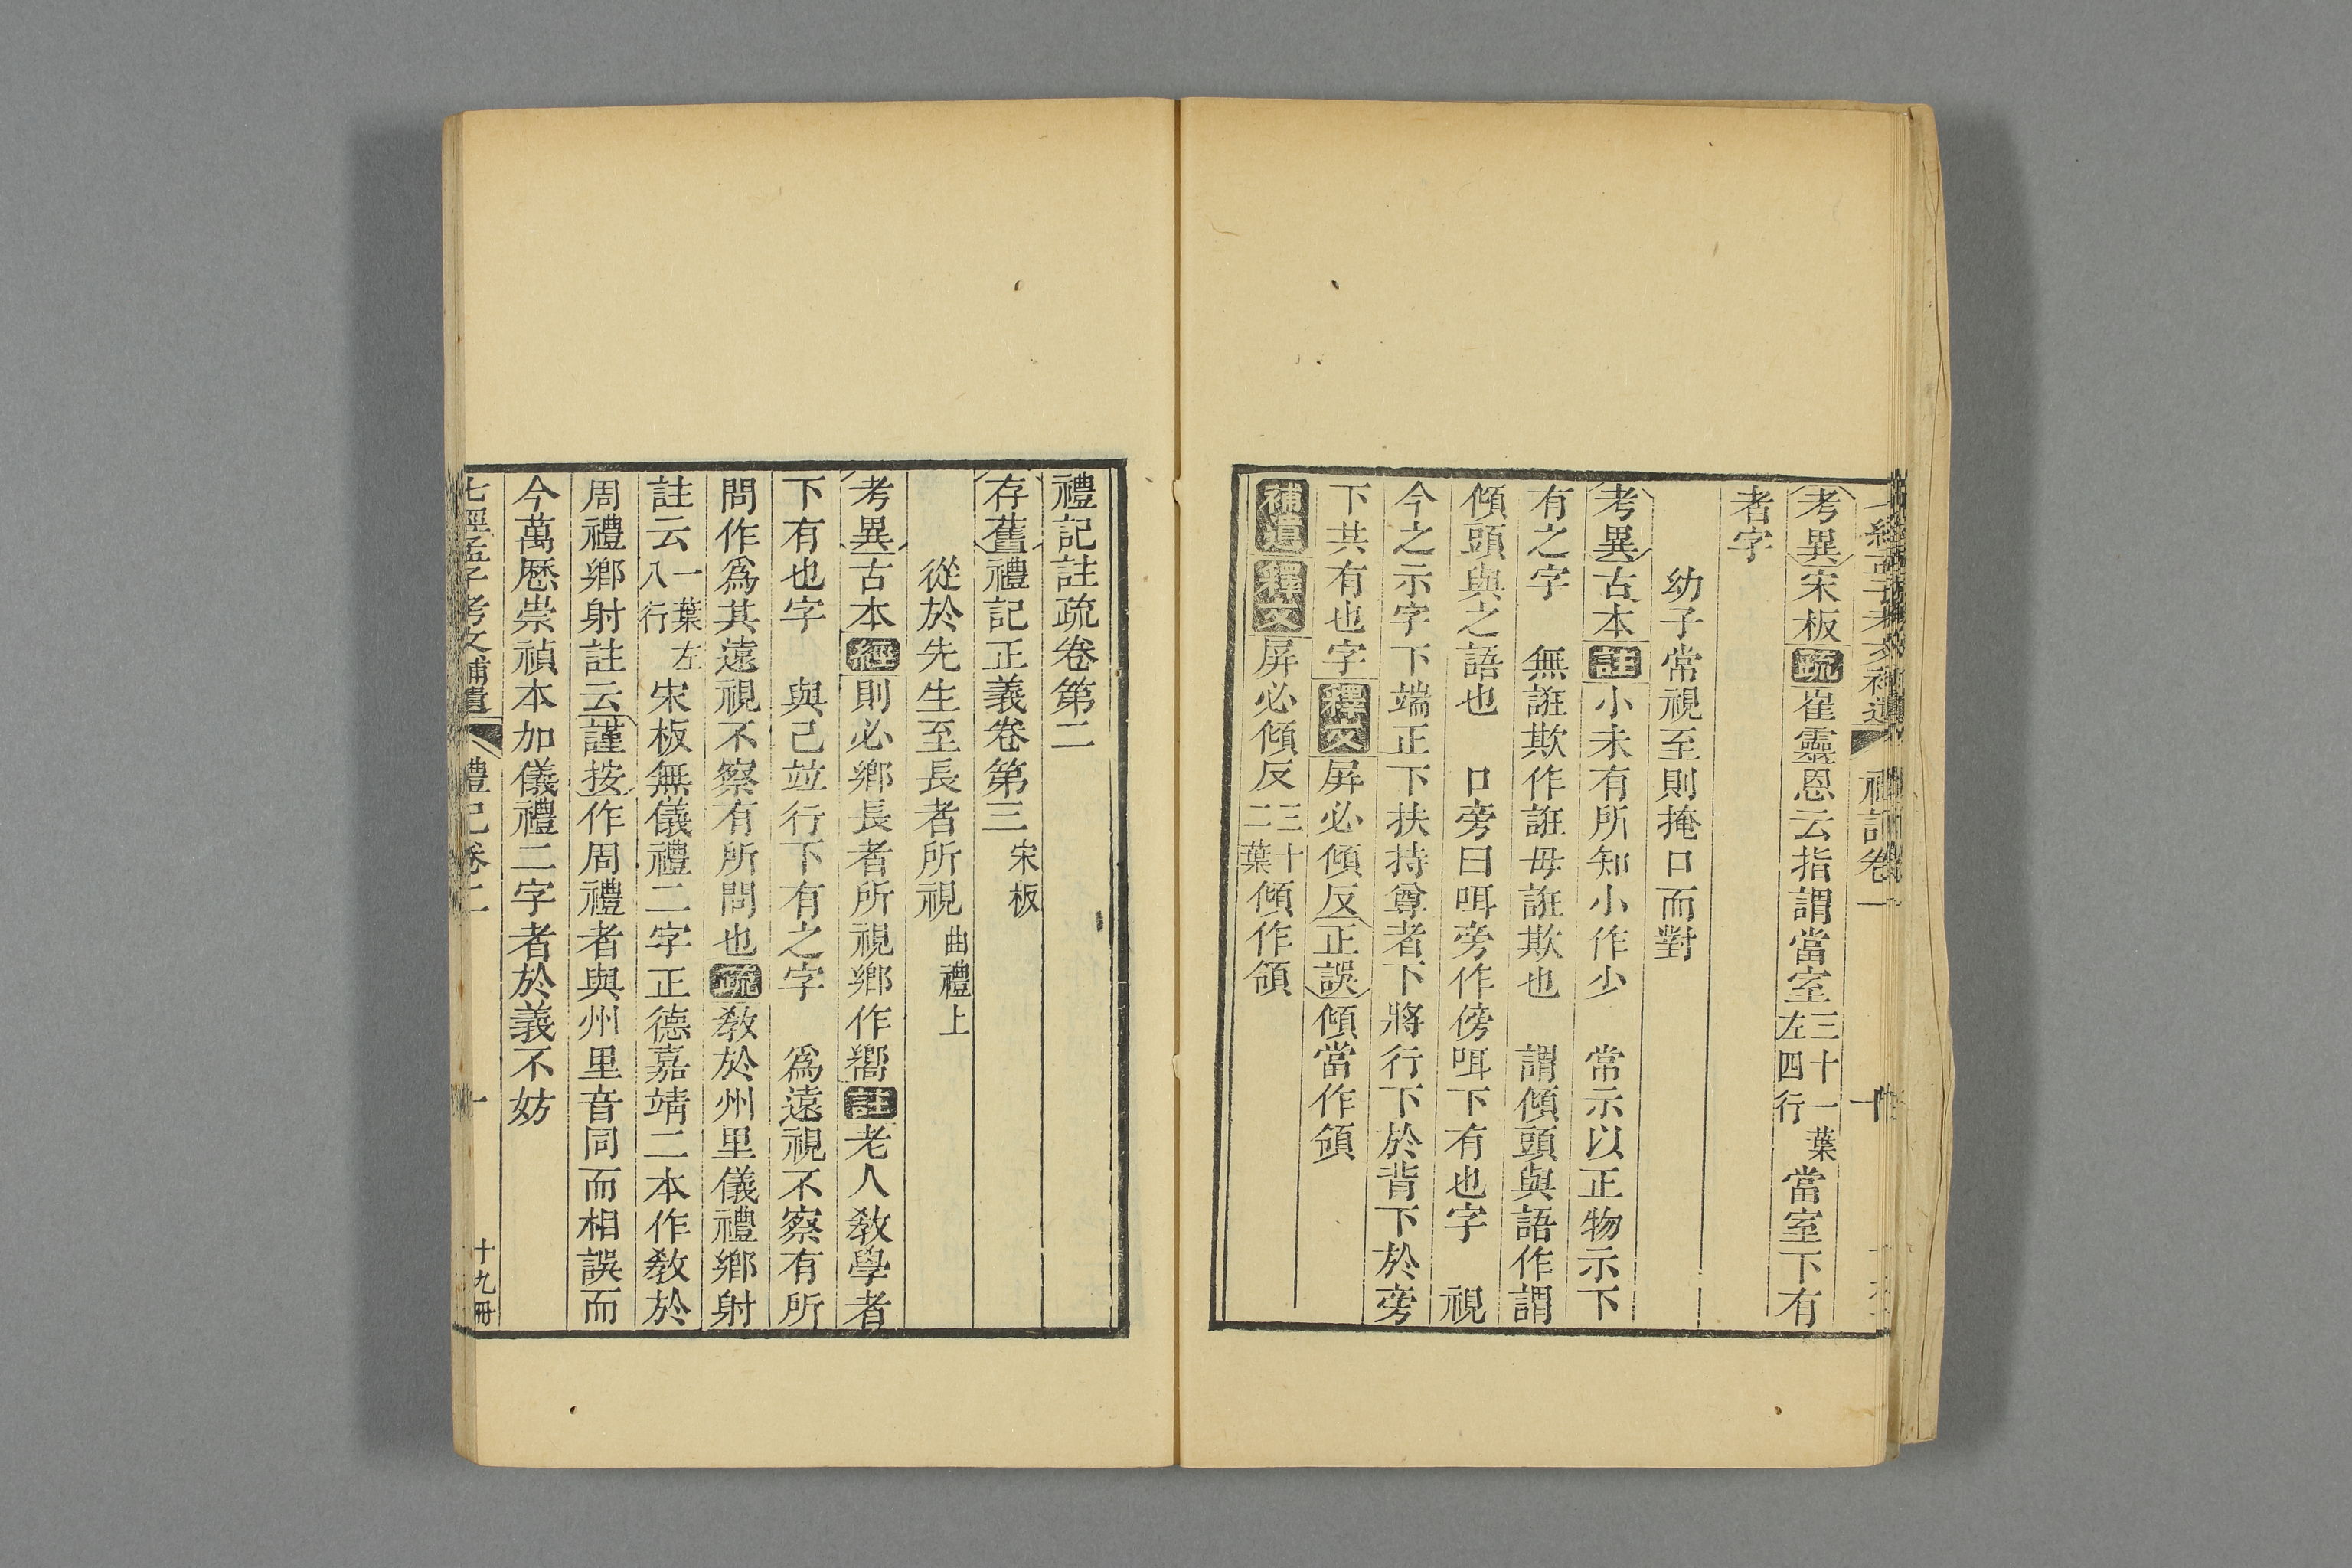 考異宋板疏崔靈恩云指謂當室三十一葉左四行當室下有
者字
幼子常視至則掩口而對
考異古本註小未有所知小作少　常示以正物示下
有之字　無誑欺作誑毋誑欺也　謂傾頭與語作謂
傾頭與之語也　口旁曰咡旁作傍咡下有也字　視
今之示字下端正下扶持尊者下將行下於背下於旁
下共有也字釋文屏必傾反正誤傾當作領
補遺釋文屏必傾反三十二葉傾作領
禮記註疏卷第二
存舊禮記正義卷第三宋板
從於先生至長者所視曲禮上
考異古本經則必鄉長者所視鄉作嚮註老人教學者
下有也字　與己竝行下有之字　爲遠視不察有所
問作爲其遠視不察有所問也疏教於州里儀禮鄉射
註云一葉左八行宋板無儀禮二字正德嘉靖二本作教於
周禮鄉射註云謹按作周禮者與州里音同而相誤而
今萬厯崇禎本加儀禮二字者於義不妨
七經孟子考文補遺　禮記卷二　一　十九冊